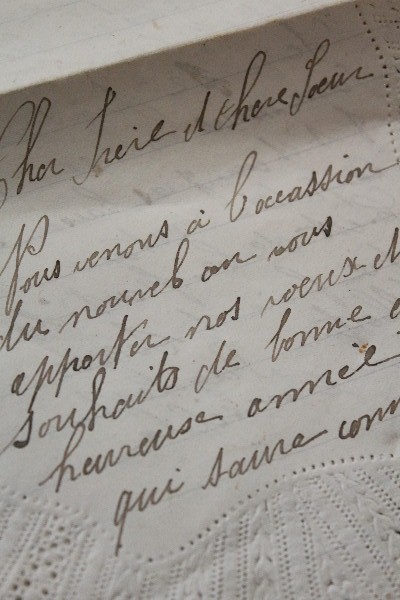 Cher Frère et chere Soeur
Nous venons à l'occassion
du nouvel an vous
apporter nos voeux et
souhaits de bonne e
heureuse année
qui saura com